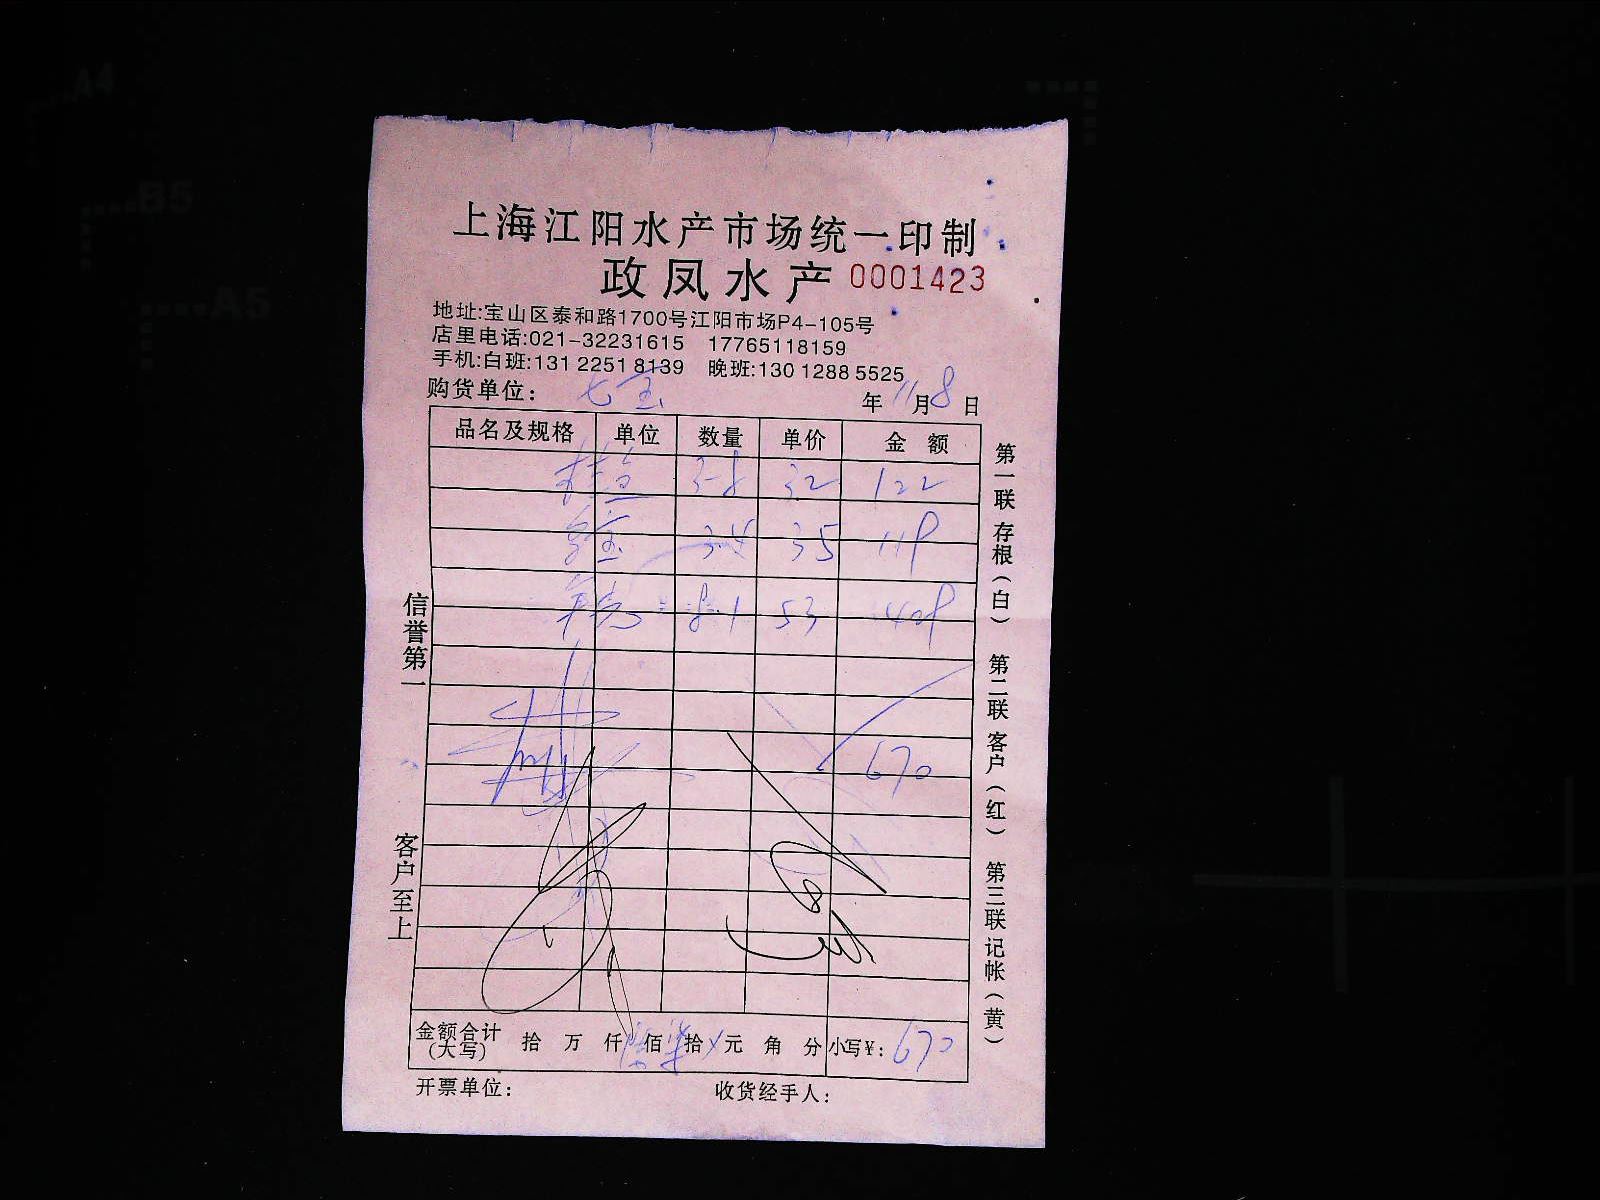 上海江阳水产市场统一印制
政凤水产 0001423
地址:宝山区泰和路1700号江阳市场P4-105号
店里电话:021-32231615 17765118159
手机:白班:131 2251 8139 晚班:130 1288 5525
购货单位: 七宝 年 11月8日
品名及规格 单位 数量 单价 金额
桂鱼 3.8 32 122
3.4 35 119
8.1 53 429
670
金额合计(大写) 拾 万 仟 陆佰 柒拾 元 角 分 小写¥: 670
开票单位: 收货经手人:
信誉第一
客户至上
第一联存根(白) 第二联客户(红) 第三联记帐(黄)